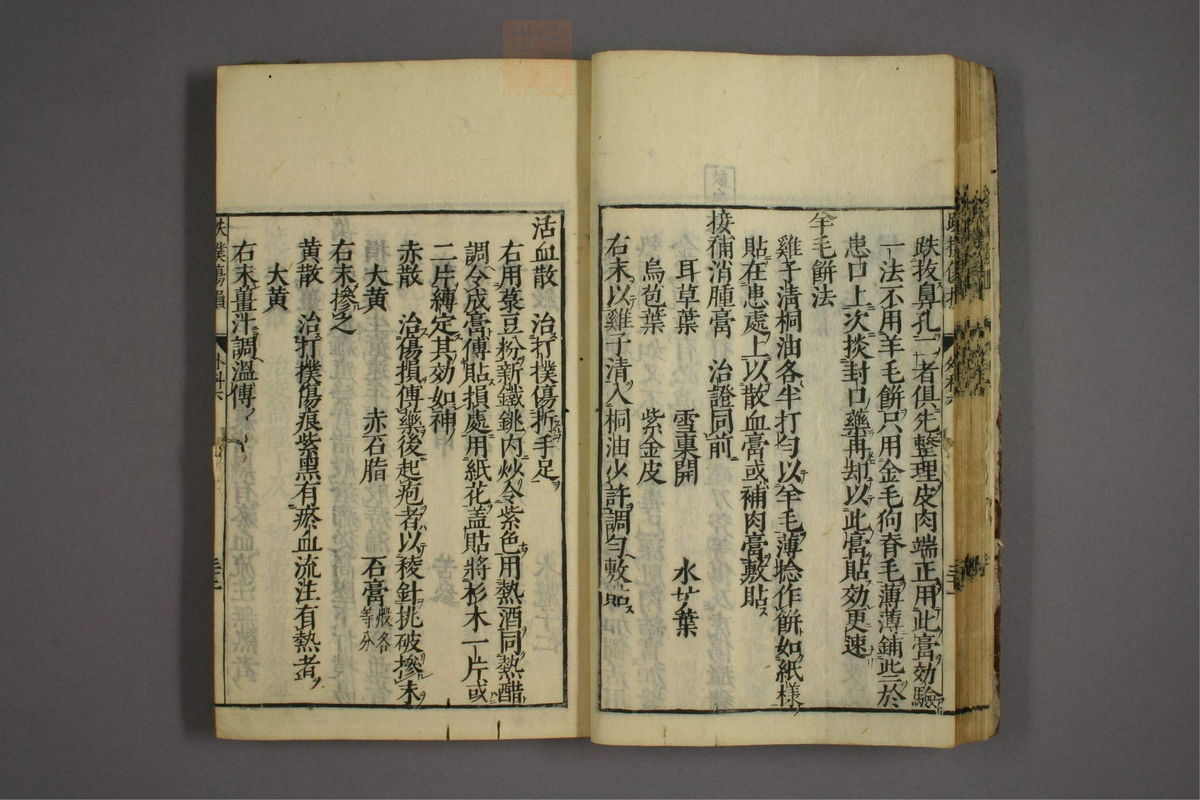 跌抜鼻孔一者俱先整理皮肉端正用此膏効驗
一法不用羊毛餅只用金毛狗脊毛薄薄鋪些於
患口上次掞封口藥再却以此膏貼効更速
羊毛餅法
雞子清桐油各半打勻以羊毛薄捻作餅如紙樣
貼在患處上以散血膏或補肉膏敷貼
接補消腫膏 治證同前
耳草葉 雪裏開 水
烏苞葉 紫金皮
右末以雞子清入桐油少許調勻敷貼
活血散 治打撲傷折手足
右用菉豆粉新鐵銚内炒令紫色用熱酒同熱醋
調令成膏傅貼損處用紙花蓋貼將杉木一片或
二片縛定其効如神
赤散 治傷損傅藥後起疱者以稜針挑破摻末
大黄 赤石脂 石膏煆各等分
右末摻之
黄散 治打撲傷痕紫黑有瘀血流注有熱者
大黄
右末薑汁調溫傅